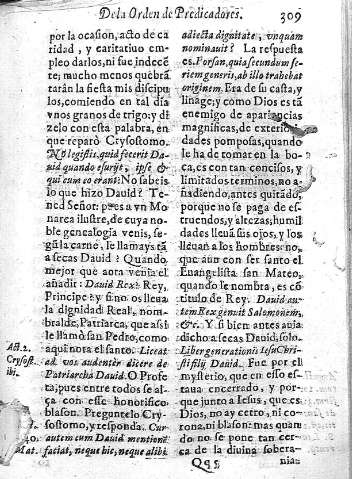 De la Orden de Predicadores. 309
por la ocasion, acto de ca
ridad, y caritatiuo em
pleo darlos, ni fue indecẽ
te; mucho menos quebrã
tarán la fiesta mis discipu
los, comiendo en tal dia
vnos granos de trigo; y di
zelo con esta palabra, en
que reparò Crysostomo.
Nõ legistis, quid fecerit Da
uid quando esurijt, ipse &
qui cum eo erant? No sabeis
lo que hizo Dauid? Te-
ned Señor: pues a vn Mo
narca ilustre, de cuya no
ble genealogia venis, se-
gũ la carne, le llamays tã
a secas Dauid? Quando
mejor que aora venia el
añadir: Dauid Rex? Rey,
Principe? y si no os lleua
la dignidad Real, nom-
bralde, Patriarca, que assi
le llamò san Pedro, como
aqui nota el santo. Liceat
ad vos audenter dicere de
Patriarcha Dauid. O Profe
ta, pues entre todos se al-
ça con esse honorifico
blason. Preguntelo Cry-
sostomo, y responda. Cur
autem cum Dauid mentionẽ
faciat, neque hic, neque alibi
Act. 2.
Crysost.
ibi.
adiecta dignitate, vnquam
nominauit? La respuesta
es. Forsan, quia secundum se-
riem generis, ab illo trahebat
originem. Era de su casta, y
linage; y como Dios es tã
enemigo de apariencias
magnificas, de exteriori-
dades pomposas, quando
le ha de tomar en la bo-
ca, es con tan concisos, y
limitados terminos, no a-
ñadiendo, antes quitãdo,
porque no se paga de es-
truendos, y altezas; humil
dades lleuã sus ojos, y los
lleuan a los hombres: no,
que aun con ser santo el
Euangelista san Mateo,
quando le nombra, es cõ
titulo de Rey. Dauid au-
tem Rex genuit Salomonem,
&c. Y si bien antes auia
dicho a secas Dauid, solo.
Liber generationis Iesu Chri-
sti filij Dauid. Fue por el
mysterio, que en esso es-
taua encerrado, y por-
que junto a Iesus, que es
Dios, no ay cetro, ni co-
rona, ni blason: mas quan
do no se pone tan cer-
ca de la diuina sobera-
Qq 5 nia: